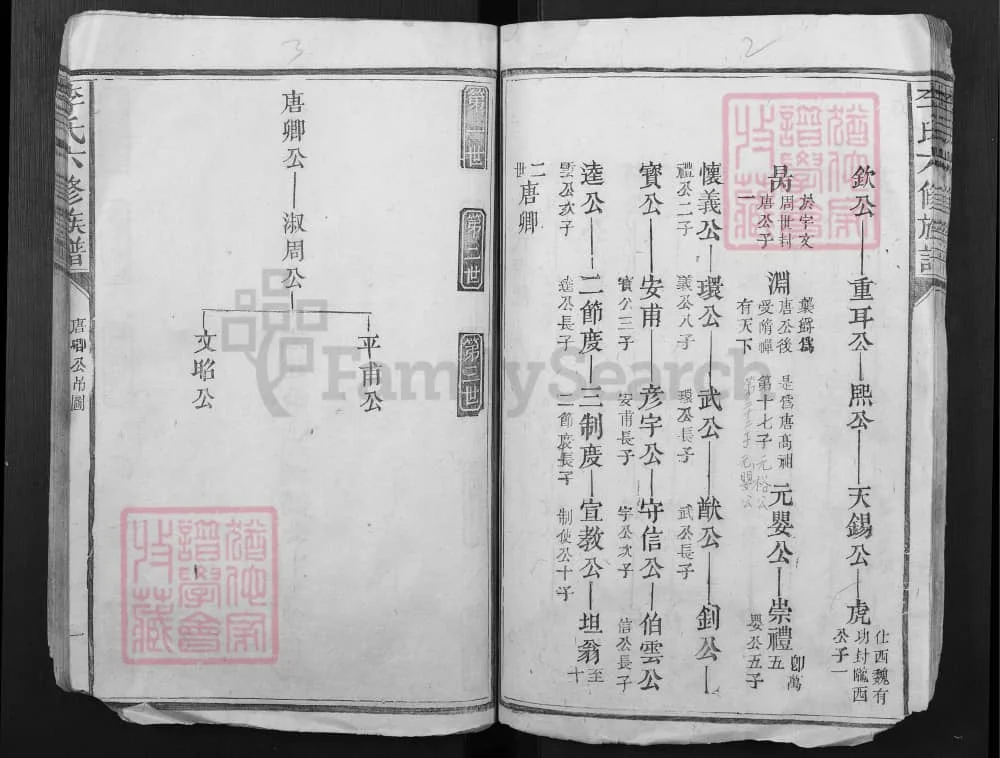 2
李氏六修族譜
欽公—重耳公—熙公—天錫公—虎
仕西魏有
功封隴西
公子一
昺
於宇文
周世封
唐公子
一
淵
襲爵為
唐公後
受隋禪
有天下
是為唐高祖
第十七子
元裕公
元嬰公
元嬰公—崇禮
卽萬
五
嬰公五子
懷義公—環公—武公—猷公—釗公
禮公二子
義公八子
環公長子
武公長子
寳公—安甫—彦宇公—守信公—伯雲公
寳公三子
安甫長子
宇公次子
信公長子
逵公—二節度—三制度—宣教公—坦翁
至
十
雲公次子
逵公長子
二節度長子
制使公十子
二世
唐卿
3
第一世
第二世
第三世
唐卿公—淑周公
平甫公
文昭公
李氏六修族譜
唐卿公吊圖
一
FamilySearch